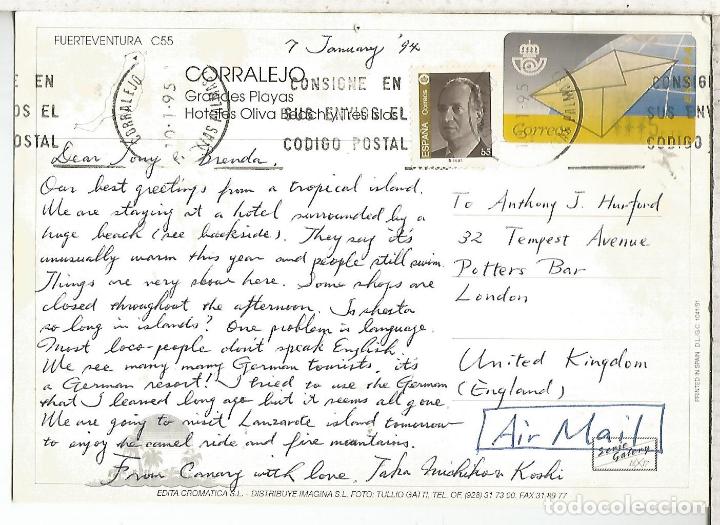 FUERTEVENTURA C55
7 January '94
CORRALEJO
Grandes Playas
Hoteles Oliva Beach y Tres Islas
CORRALEJO
10-1-95
LAS PALMAS
CONSIGNE EN
SUS ENVIOS EL
CODIGO POSTAL
ESPAÑA
Correos
55
Correos
Dear Tony & Brenda,
Our best greetings from a tropical island.
We are staying at a hotel surrounded by a
huge beach (see backside). They say it's
unusually warm this year and people still swim.
Things are very slow here. Some shops are
closed throughout the afternoon. Is shesta
so long in islands? One problem is language.
Most loco-people don't speak English.
We see many many German tourists, it's
a German resort! I tried to use the German
that I learned long ago but it seems all gone
We are going to visit Lanzarote island tomorrow
to enjoy the camel ride and fire mountains.
From Canary with love, Taka Michiko Koshi
To Anthony J. Hurford
32 Tempest Avenue
Potters Bar
London
United Kingdom
(England)
Air Mail
Sonic Gallery
PRINTED IN SPAIN D.L./G.C. 1041/91
EDITA CROMATICA S.L. - DISTRIBUYE IMAGINA S.L. FOTO: TULLIO GATTI, TEL. OF. (928) 31 73 00. FAX 31 89 77
todocoleccion.net